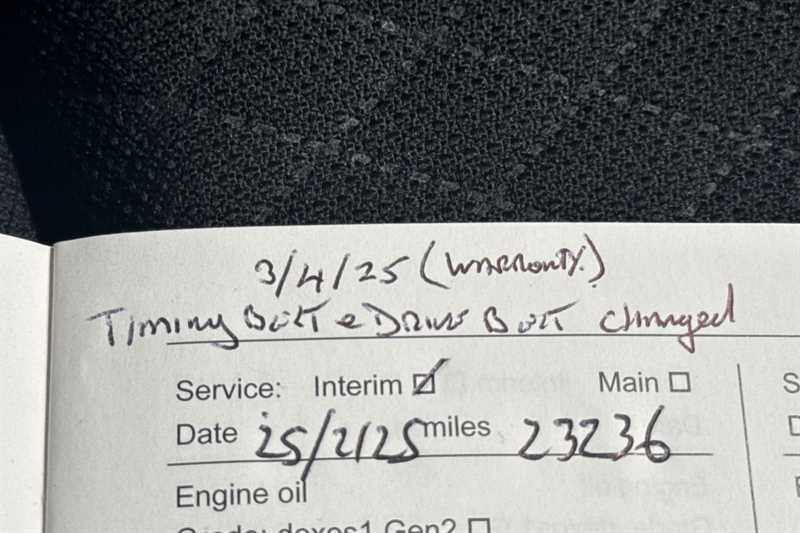 3/4/25 (Warranty.)
Timing Belt & Drive Belt changed
Service: Interim ☑ Main ☐
Date 25/2/25 miles 23236
Engine oil
Grade: dexos1 Gen2 ☐